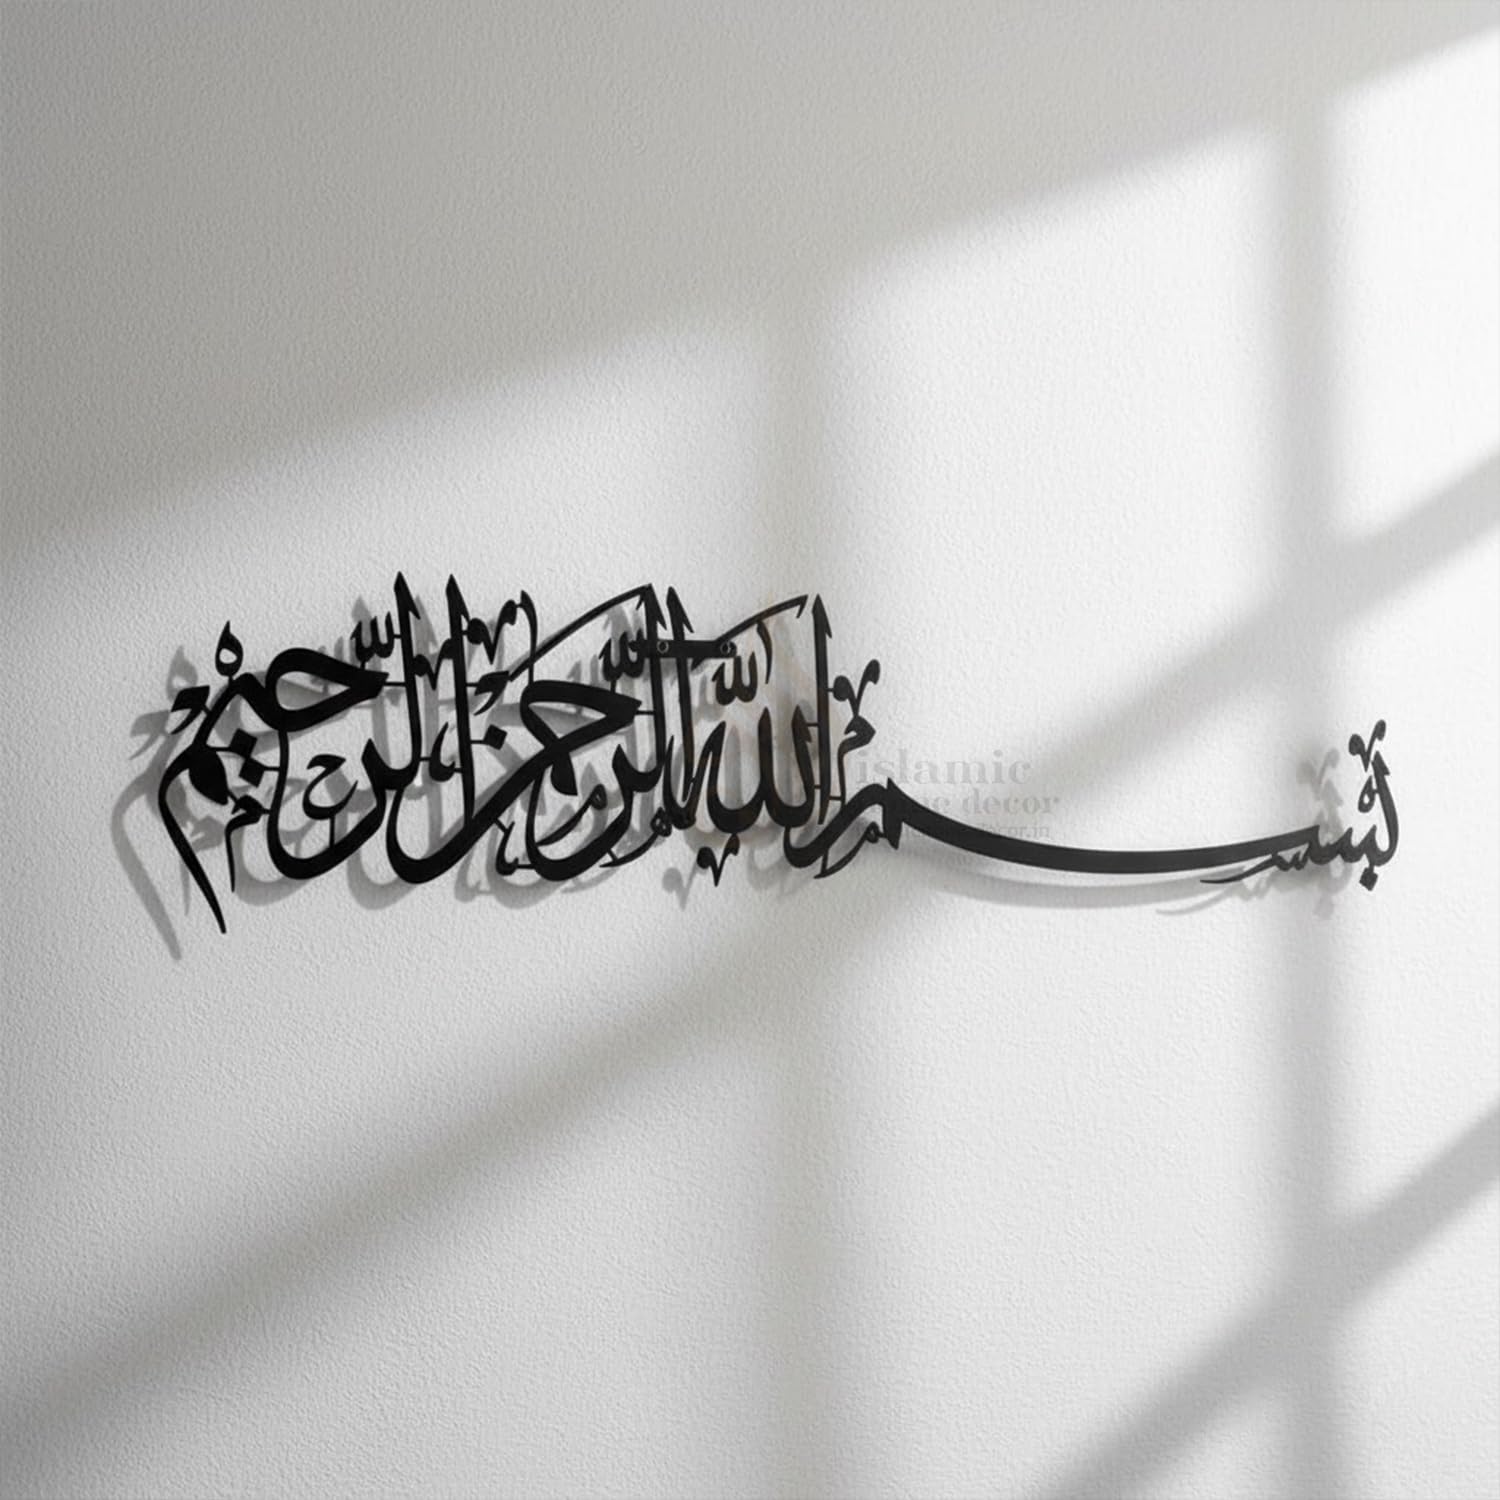 بسم الله الرحمن الرحيم
islamic
decor